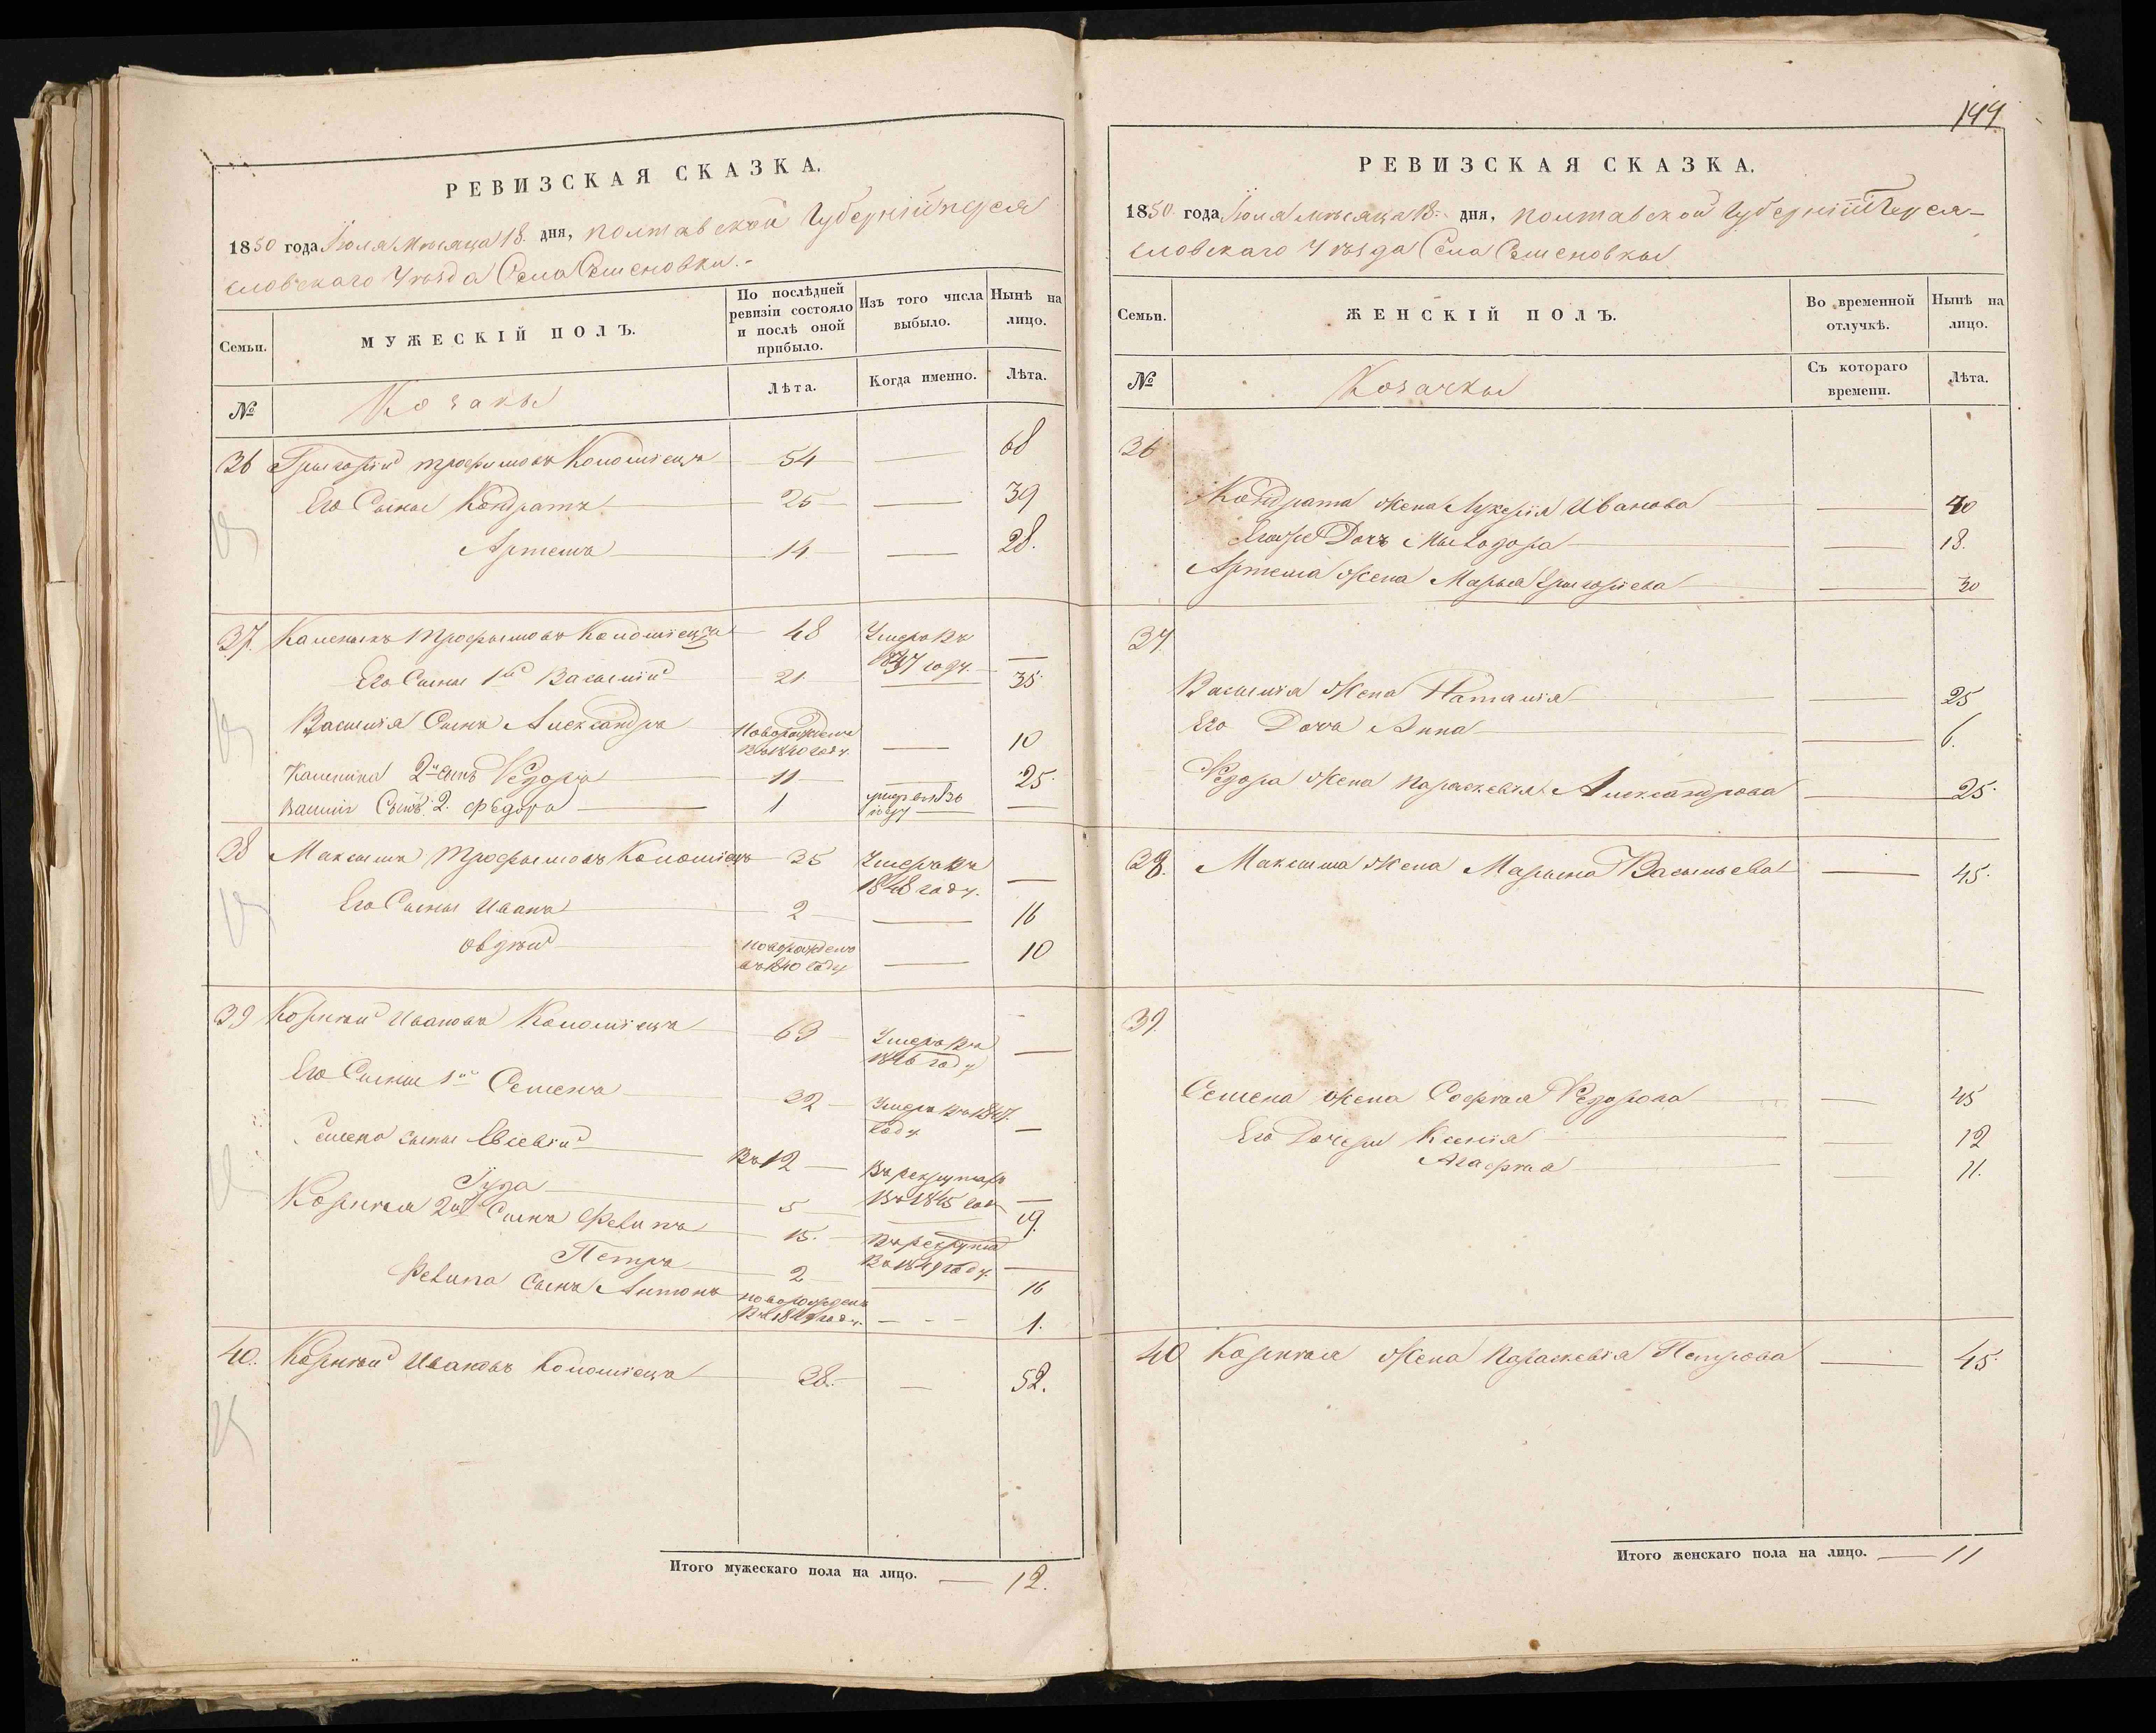 РЕВИЗСКАЯ СКАЗКА.
1850 года Іюля Мѣсяца 18. дня, Полтавской Губерніи Перея
словскаго Уѣзда Села Семеновки.-
Семьи.
МУЖЕСКІЙ ПОЛЪ.
По послѣдней ревизіи состояло и послѣ оной прибыло.
Изъ того числа выбыло.
Нынѣ на лицо.
№
Козаки
Лѣта.
Когда именно.
Лѣта.
36 Григорій Трофимовъ Коломіецъ 54 — 68
Его Сыны Кондратъ 25 — 39
Артемъ 14 — 28.
37. Каленикъ Трофымовъ Коломіецъ 48 Умеръ въ
1837 году. —
Его Сыны 1й Василій 21 — 35
Василія Сынъ Александръ Новорожденъ
въ 1840 году. — 10
Каленика 2й сынъ Федоръ 11 — 25.
Василія Сынъ 2. Федоръ 1 —
году —
38 Максимъ Трофымовъ Коломіецъ 25 Умеръ въ
1848 году. —
Его Сыны Иванъ 2 — 16
Овдѣй Новорожденъ
въ 1840 году — 10
39 Корнѣй Ивановъ Коломіецъ 63 Умеръ въ
году —
Его Сыны 1й Семенъ 32 Умеръ въ 1847.
году —
Семена сыны Евсевій 12 Въ рекруты
въ 1845 год —
Іуда 5 — 19.
Корнѣя 2й Сынъ 15. Въ рекруты
въ 1849 году. —
Петръ 2 — 16
Сынъ Антонъ новорожденъ
въ 1849 году. — - - 1.
40. Корнѣй Ивановъ Коломіецъ 38. — 52.
Итого мужескаго пола на лицо. — 12.
144
РЕВИЗСКАЯ СКАЗКА.
1850 года Іюля мѣсяца 18. дня, Полтавской Губерніи Перея-
словскаго Уѣзда Села Семеновки
Семьи.
ЖЕНСКІЙ ПОЛЪ.
Во временной отлучкѣ.
Нынѣ на лицо.
№
Козачки
Съ котораго времени.
Лѣта.
36
Кондрата Жена Лукерія Иванова — 40
Дочь — 18.
Артема Жена Марья Григоріева — 30
37.
Василія Жена Наталія — 25
Его Дочь Анна — 6.
Федора Жена Параскевія Александрова — 25.
38. Максима Жена Марына Васильева — 45.
39.
Семена жена Софія Федорова — 45
Его Дочери Ксенія — 12
Агафія — 11.
40 Корнѣя Жена Параскевія Петрова — 45.
Итого женскаго пола на лицо. — 11